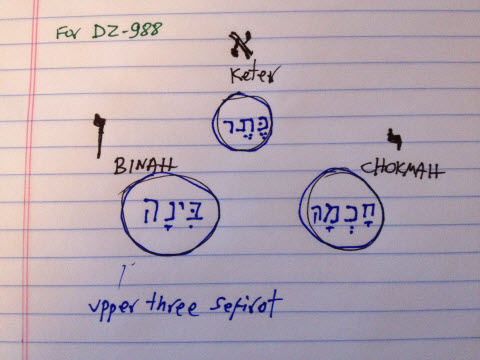 For DZ-988
א
Keter
כֶּתֶר
ן
י
BINAH
CHOKMAH
בִּינָה
חָכְמָה
upper three sefirot